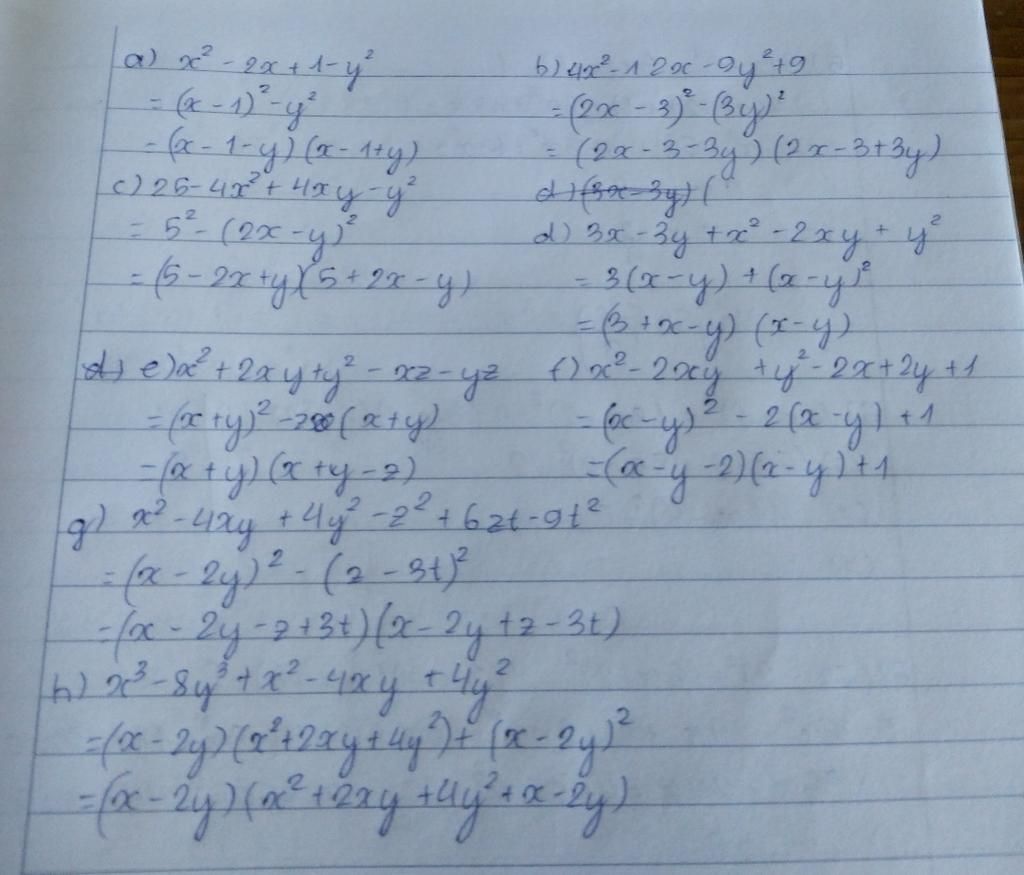 a) x² - 2x + 1 - y²
= (x - 1)² - y²
= (x - 1 - y) (x - 1 + y)
b) 4x² - 12x - 9y² + 9
= (2x - 3)² - (3y)²
= (2x - 3 - 3y) (2x - 3 + 3y)
c) 25 - 4x² + 4xy - y²
= 5² - (2x - y)²
= (5 - 2x + y)(5 + 2x - y)
d) (3x - 3y) (
d) 3x - 3y + x² - 2xy + y²
= 3(x - y) + (x - y)²
= (3 + x - y) (x - y)
d) e) x² + 2xy + y² - xz - yz
= (x + y)² - z (x + y)
= (x + y) (x + y - z)
f) x² - 2xy + y² - 2x + 2y + 1
= (x - y)² - 2(x - y) + 1
= (x - y - 2)(x - y) + 1
g) x² - 4xy + 4y² - z² + 6zt - 9t²
= (x - 2y)² - (z - 3t)²
= (x - 2y - z + 3t)(x - 2y + z - 3t)
h) x³ - 8y³ + x² - 4xy + 4y²
= (x - 2y)(x² + 2xy + 4y²) + (x - 2y)²
= (x - 2y)(x² + 2xy + 4y² + x - 2y)